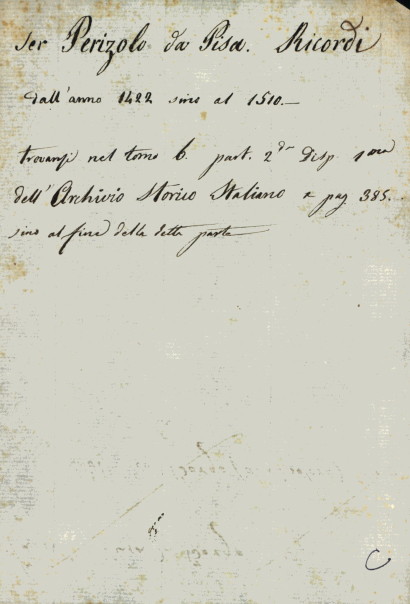 Ser Perizolo da Pisa. Ricordi
dall'anno 1422 sino al 1510.—
trovansi nel tomo 6. part. 2da Disp. 1ma
dell'Archivio Storico Italiano a pag 385.
sino al fine della detta parte